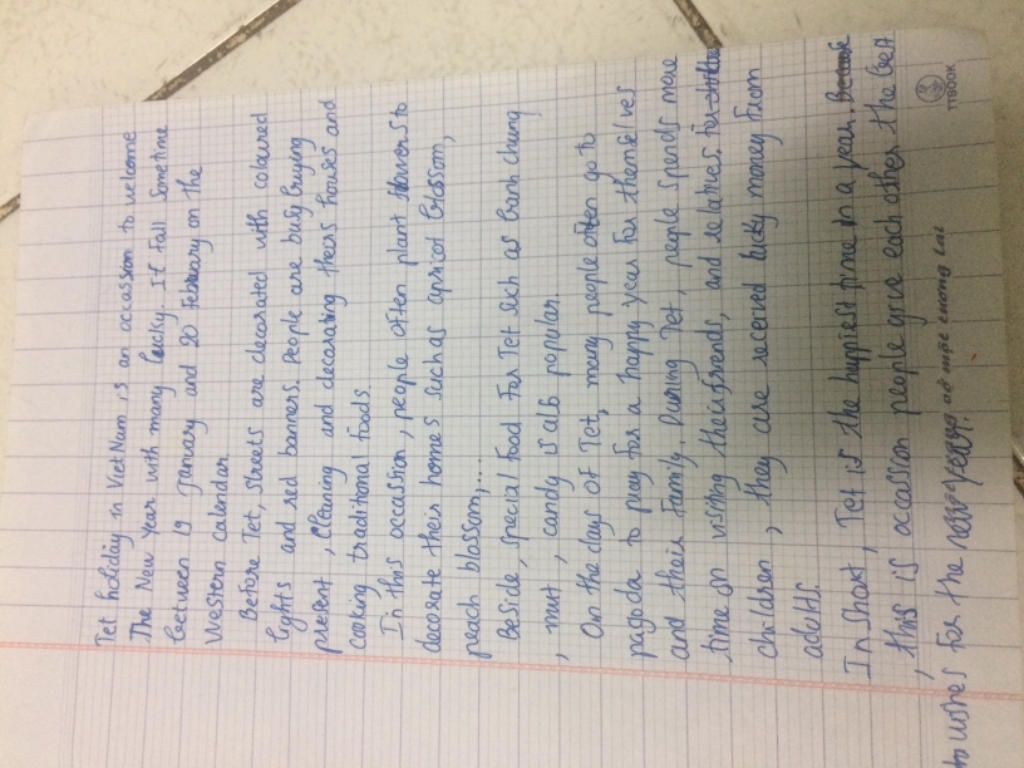 Tet holiday in Viet Nam is an occassion to welcome
The New Year with many lucky. It fall sometime
between 19 January and 20 February on the
Western calender.
Before Tet, streets are decorated with coloured
lights and red banners. People are busy buying
present, cleaning and decorating theirs houses and
cooking traditional foods.
In this occasion, people often plant flowers to
decorate their homes such as apricot blossom,
peach blossom,...
Beside, special food for Tet such as banh chung
, mut, candy is alb popular.
On the days of Tet, many people often go to
pagoda to pray for a happy year for themselves
and their family. During Tet, people spends more
time on visiting their friends, and relatives. For
children, they are received lucky money from
adults.
In short, Tet is the happiest time in a year.
, this is occassion people give each other the best
to wishes for the new year.
TTBOOK